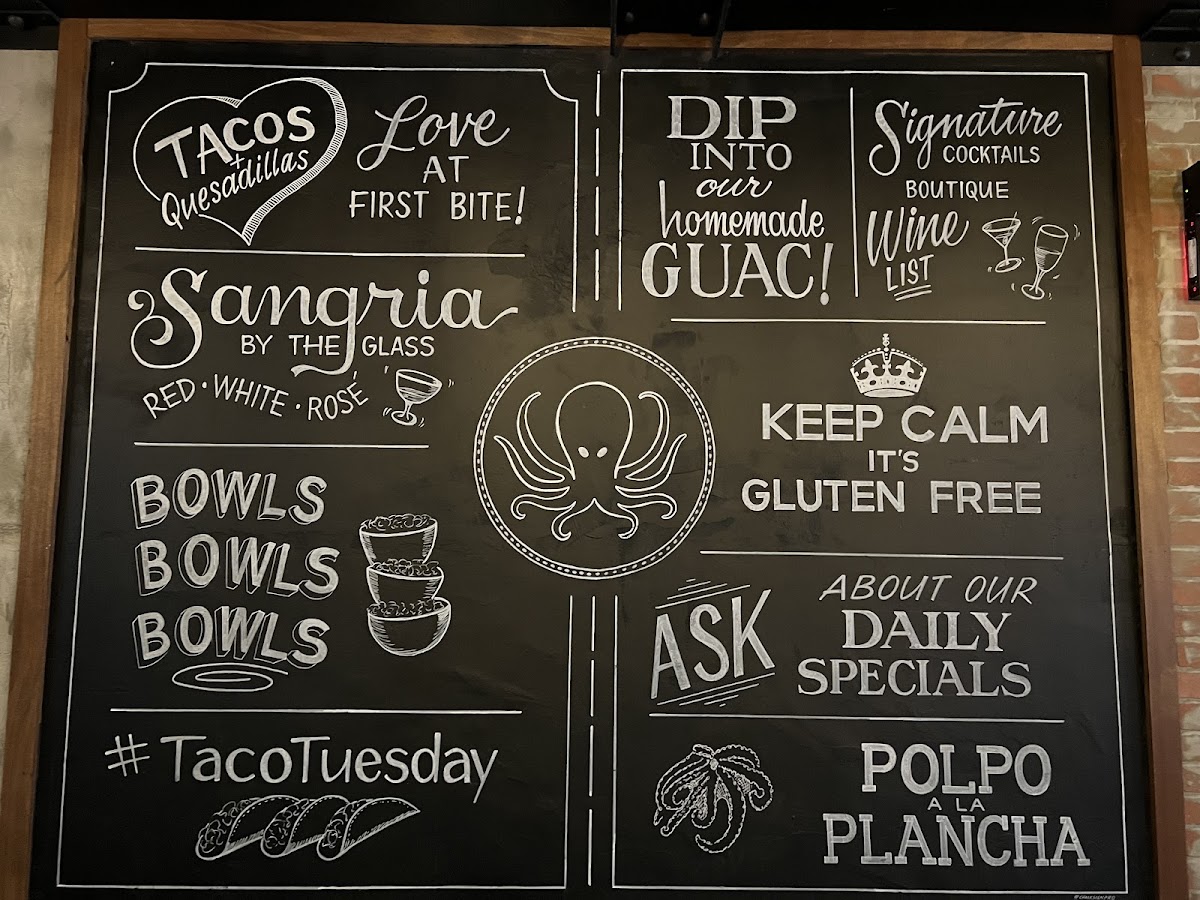 TACOS
+
Quesadillas
Love
AT
FIRST BITE!
Sangria
BY THE GLASS
RED · WHITE · ROSÉ
BOWLS
BOWLS
BOWLS
#TacoTuesday
DIP
INTO
our
homemade
GUAC!
Signature
COCKTAILS
BOUTIQUE
Wine
LIST
KEEP CALM
IT'S
GLUTEN FREE
ASK
ABOUT OUR
DAILY
SPECIALS
POLPO
A LA
PLANCHA